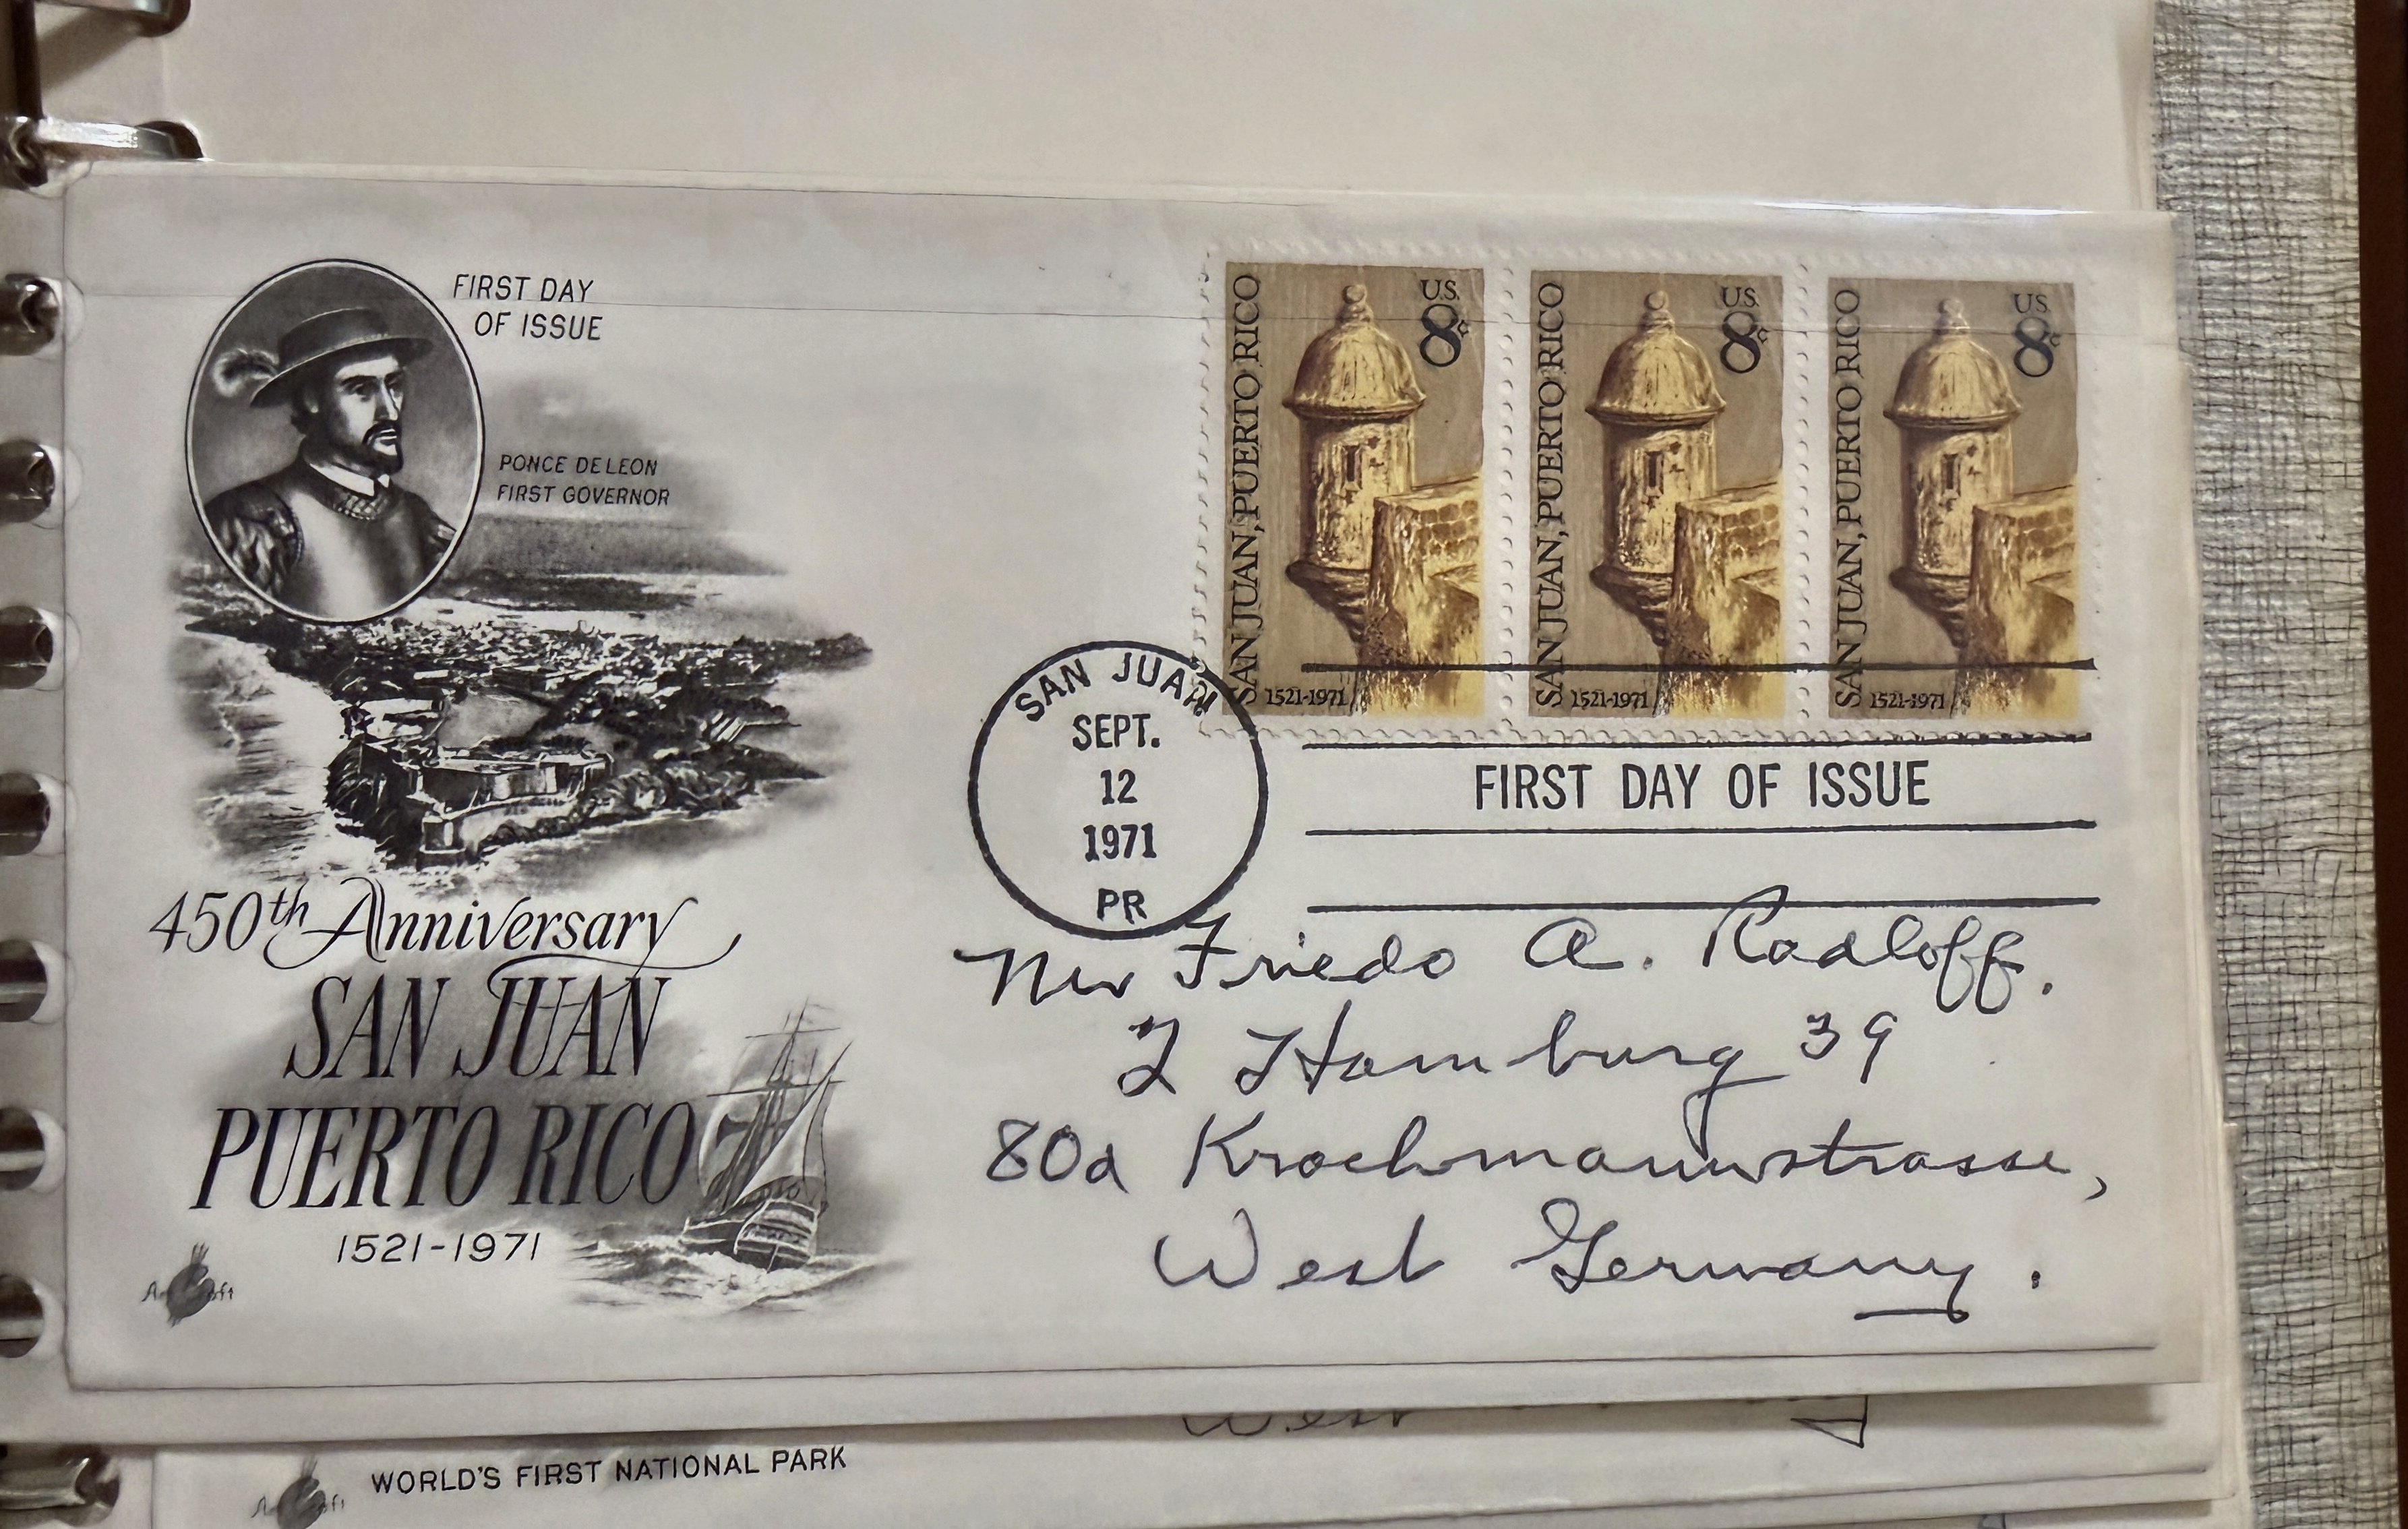 FIRST DAY
OF ISSUE
PONCE DE LEON
FIRST GOVERNOR
450th Anniversary
SAN JUAN
PUERTO RICO
1521-1971
ArtCraft
SAN JUAN, PUERTO RICO
U.S.
8c
1521-1971
SAN JUAN, PUERTO RICO
U.S.
8c
1521-1971
SAN JUAN, PUERTO RICO
U.S.
8c
1521-1971
SAN JUAN
SEPT.
12
1971
PR
FIRST DAY OF ISSUE
Mr Friedo A. Radloff.
2 Hamburg 39
80a Krochmannstrasse,
West Germany.
West
WORLD'S FIRST NATIONAL PARK
ArtCraft